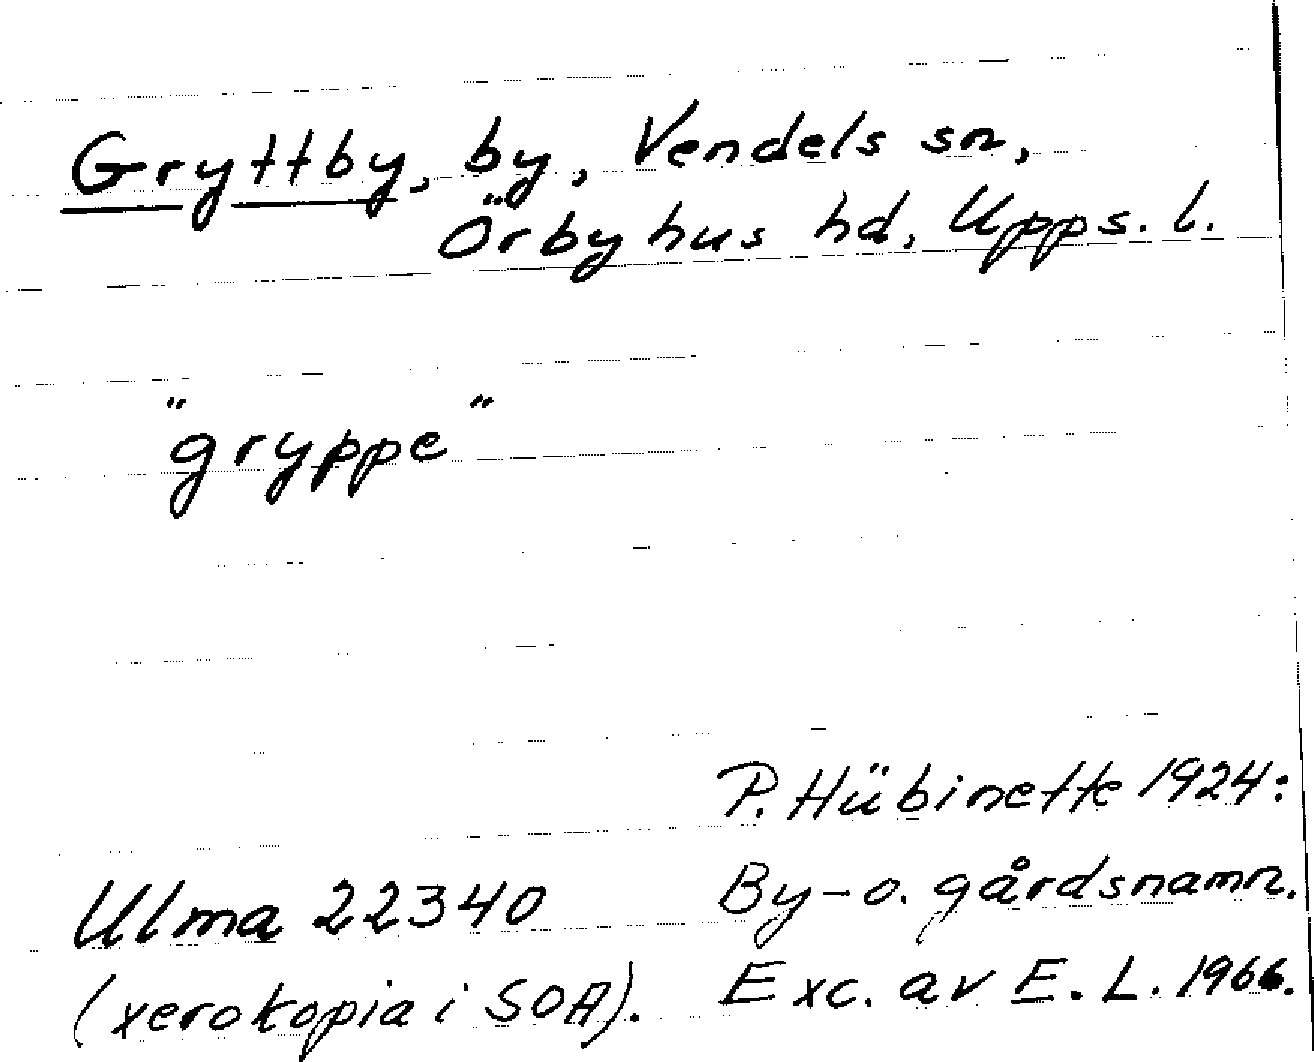 Gryttby, by, Vendels sn,
Örbyhus hd, Upps. l.
"gryppe"
P. Hübinette 1924:
Ulma 22340 By- o. gårdsnamn.
(xerokopia i SOA). Exc. av E. L. 1966.